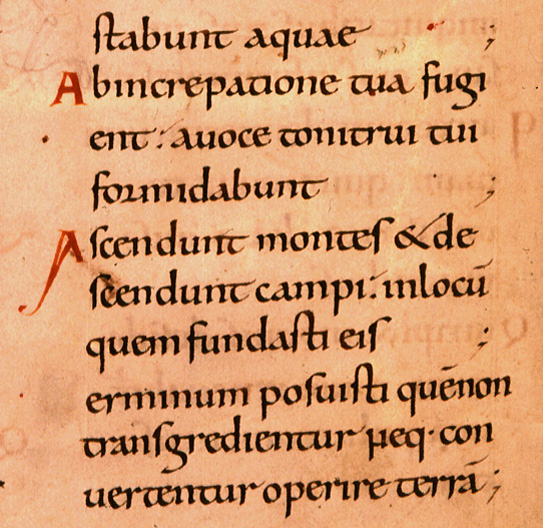 stabunt aquae ;
Abincrepatione tua fugi
ent: auoce tonitrui tui
formidabunt ;
Ascendunt montes & de
scendunt campi: inlocū
quem fundasti eis ;
erminum posuisti quēnon
transgredientur neq· con
uertentur operire terrā;